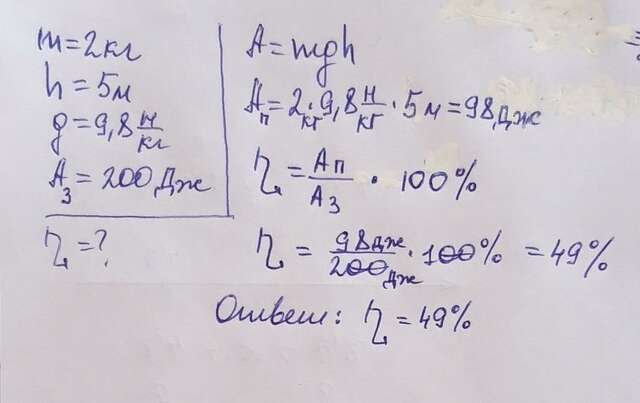 m = 2кг
h = 5м
g = 9,8 Н/кг
Aз = 200 Дж
η = ?
A = mgh
Aп = 2кг · 9,8 Н/кг · 5 м = 98 Дж
η = Aп/Aз · 100%
η = 98 Дж/200 Дж · 100% = 49%
Ответ: η = 49%